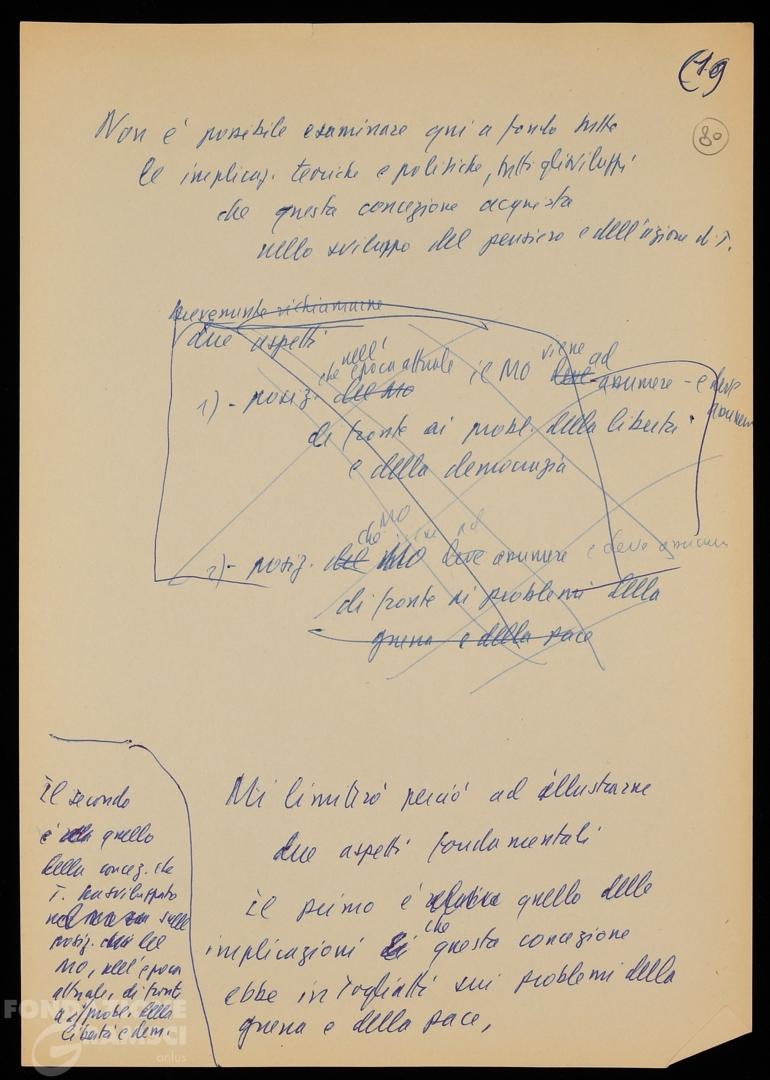 (19
80
Non è possibile esaminare qui a fondo tutte
le implicaz. teoriche e politiche, tutti gli sviluppi
che questa concezione acquista
nello sviluppo del pensiero e dell'azione di T.
brevemente richiamarne
due aspetti
1) - posiz. che nell'epoca attuale del MO il MO viene ad deve assumere - e deve assumere
di fronte ai probl. della libertà
e della democrazia
2) - posiz. del che MO MO deve assumere e deve assumere
di fronte ai problemi della
guerra e della pace
Mi limiterò perciò ad illustrarne
due aspetti fondamentali
Il primo è quello delle
implicazioni che questa concezione
ebbe in Togliatti sui problemi della
guerra e della pace,
Il secondo
è quello
della concez. che
T. ha sviluppato
sulle
posiz. del
MO, nell'epoca
attuale, di fronte
ai probl. della
libertà e dem.
FONDAZIONE
GRAMSCI
onlus